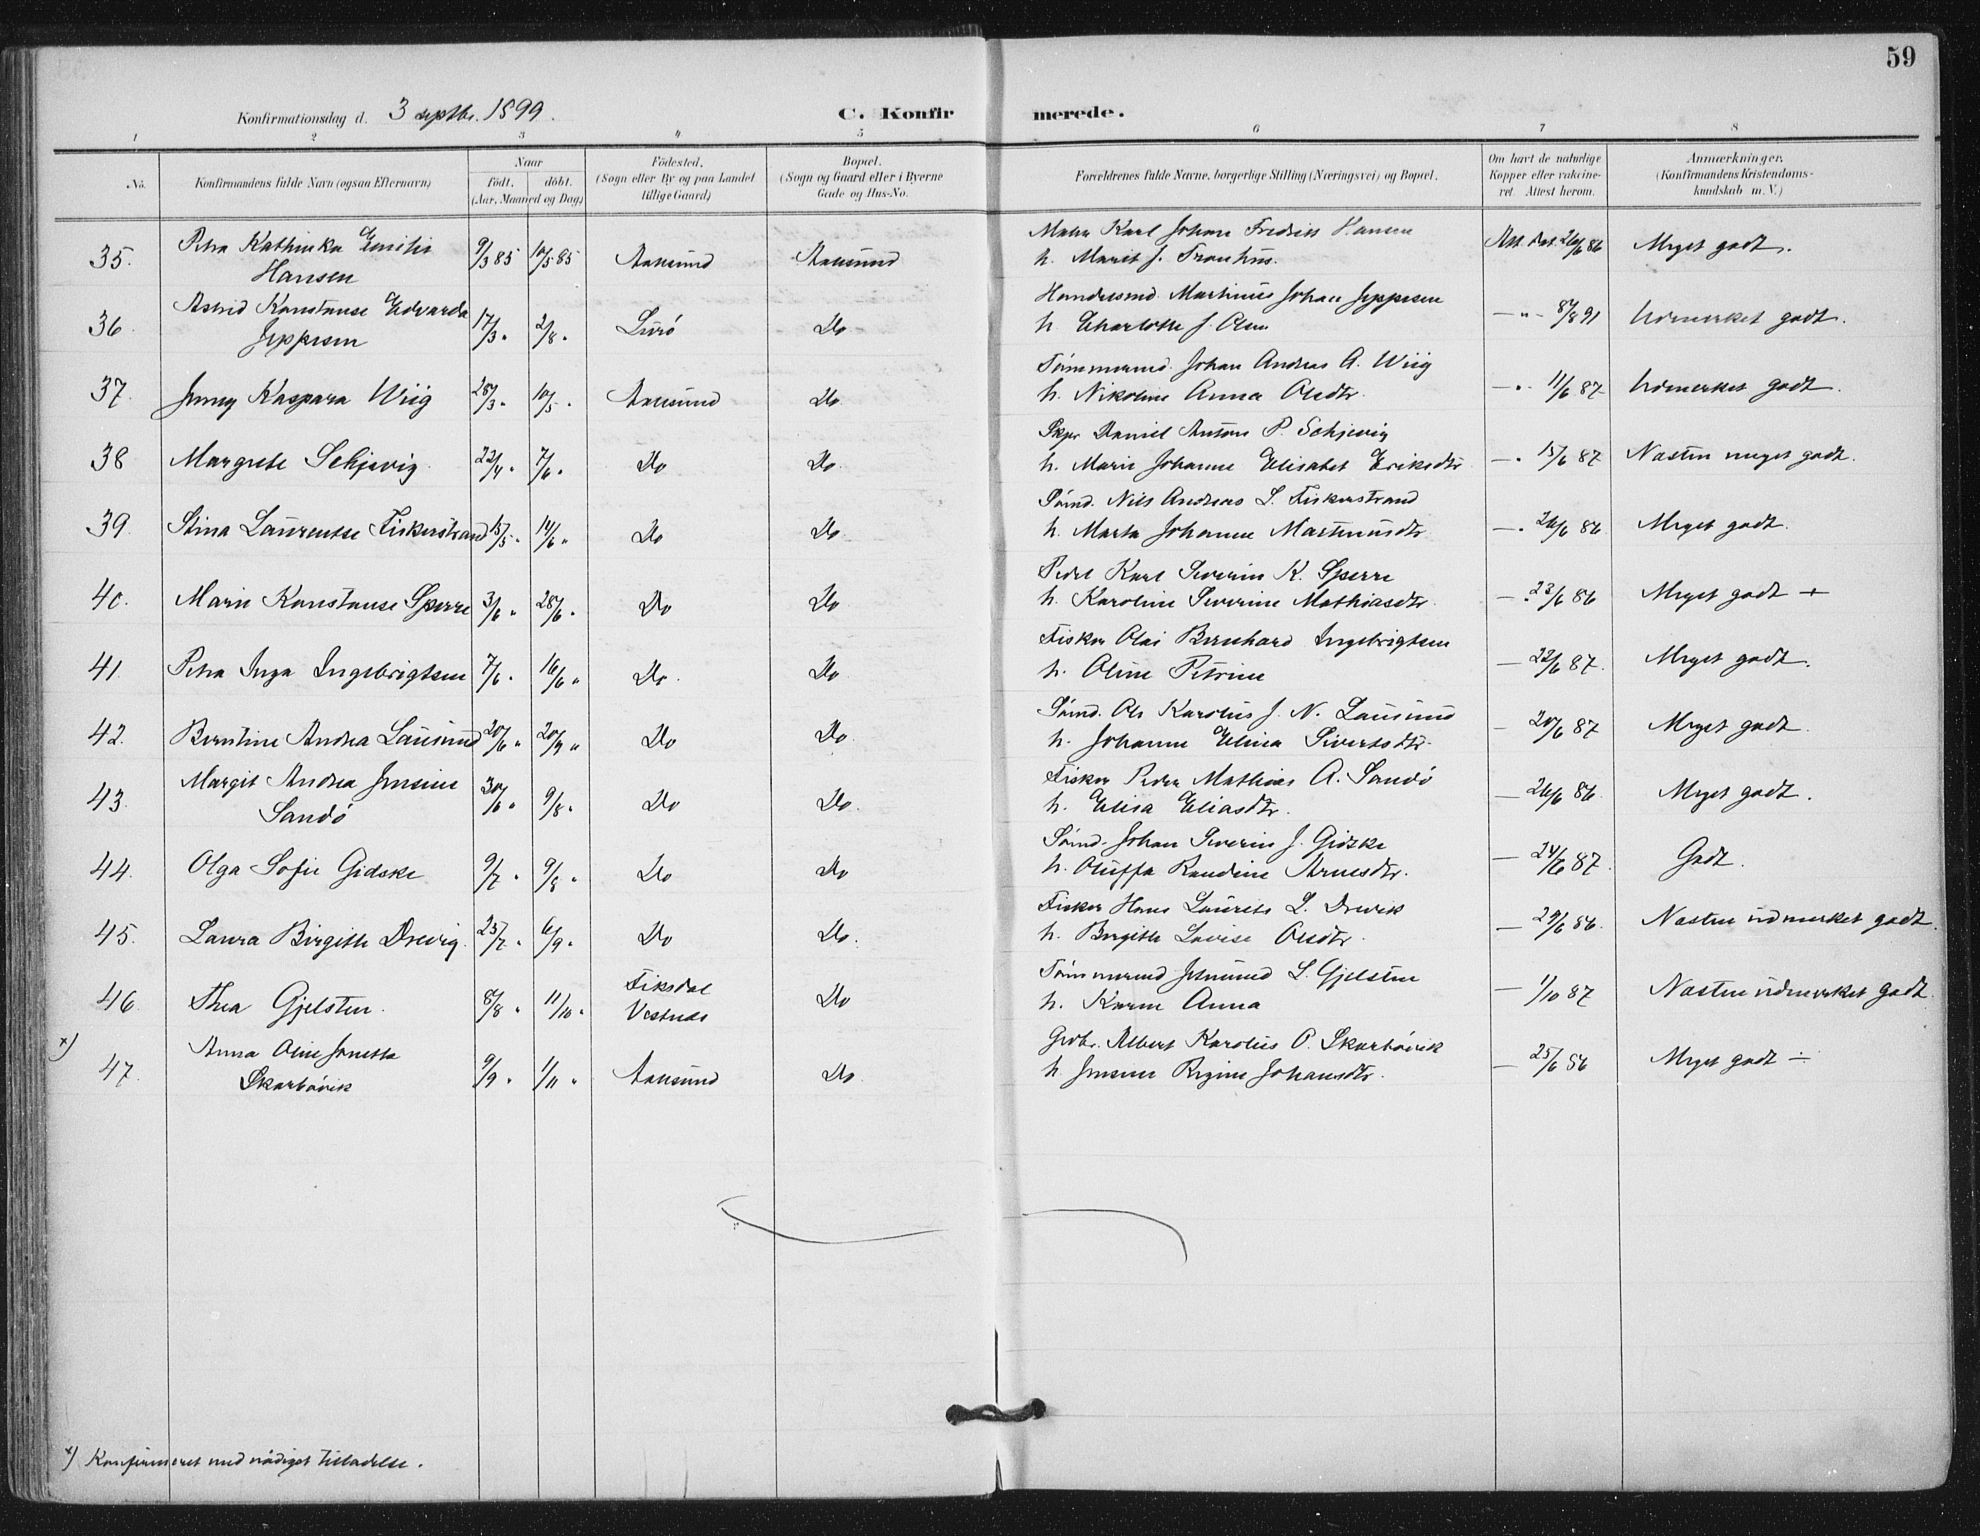 59
Konfirmationsdag d. 3 septbr. 1899.
C. Konfirmerede.
1 2 3 4 5 6 7 8
No.
Konfirmandens fulde Navn (ogsaa Efternavn)
Naar
født. døbt.
(Aar, Maaned og Dag)
Fødested.
(Sogn eller By og paa Landet
tillige Gaard)
Bopæl.
(Sogn og Gaard eller i Byerne
Gade og Hus-No.
Forældrenes fulde Navne, borgerlige Stilling (Næringsvei) og Bopæl.
Om havt de naturlige
Kopper eller vaksine-
ret. Attest herom.
Anmærkninger.
(Konfirmandens Kristendoms-
kundskab m. V.)
35. Petra Kathinka Emilie Hansen 9/3 85 10/5 85 Aalesund Aalesund Maler Karl Johan Fredrik Hansen
h. Marit J. Att. dat. 26/6 86 Meget godt.
36. Astrid Konstanse Edvarda Jeppesen 17/3 " 2/8 " Lurö Do Handelsmd. Martinus Johan Jeppesen
h. Charlotte J. Olsen — " — 8/8 91 Udmerket godt.
37. Jenny Kaspara Wiig 28/3 " 10/5 " Aalesund Do Tømmermd. Johan Andreas A. Wiig
h. Nikoline Anna Olsdtr. — " 11/6 87 Udmerket godt.
38 Margrete Schjevig 22/4 " 7/6 " Do Do. Skpr Daniel Antone P. Schjevig
h. Marie Johanne Elisabet Eriksdtr — " 15/6 87 Næsten meget godt.
39. Stina Laurentse Fiskerstrand 15/5 " 14/6 " Do Do. Sömd. Nils Andreas L. Fiskerstrand
h. Marta Johanne Martinusdtr — " 26/6 86 Meget godt.
40. Marie Konstanse Sperre 3/6 " 28/6 " Do Do Karl Severin K. Sperre
h. Karoline Severine Mathiasdtr. — " 23/6 86 Meget godt +
41. Petra Inga Ingebrigtsen 7/6 " 16/6 " Do. Do Fisker Olai Bernhard Ingebrigtsen
h. Oline Petrine — 22/6 87. Meget godt.
42. Berntine Andrea Lausund 20/6 " 20/9 " Do Do. Sömd. Ole Karolus J. N. Lausund
h. Johanne Elina Sivertsdtr. — 20/6 87 Meget godt.
43. Margit Andrea Jensine Sandö 30/6 " 9/8 " Do Do. Fisker Peder Mathias A. Sandö
h. Elisa Eliasdtr. — 26/6 86. Meget godt.
44. Olga Sofie Gidske 9/7 " 9/8 " Do Do Sömd. Johan Severin J. Gidske
h. Oluffa Randine Arnesdtr. — 24/6 87. Godt.
45. Laura Birgitte Drevig. 25/7 " 6/9 " Do Do. Fisker Hans Laurits L. Drevik
h. Birgitte Lovise Olsdtr. — 29/6 86. Næsten udmerket godt.
46. Thea Gjelsten. 8/8 " 11/10 " Fiksdal
Vestnes Do Tömmermd Jetmund L. Gjelsten
h. Karen Anna — 1/10 87 Næsten udmerket godt.
x)
47. Anna Oline Jonetta Skarbövik 9/9 " 1/11 " Aalesund Do. Grdbr. Albert Karolius O. Skarbövik
h. Jensine Regine Johansdtr. — 25/6 86 Meget godt ÷
x) Konfirmeret med nådigst tilladelse.